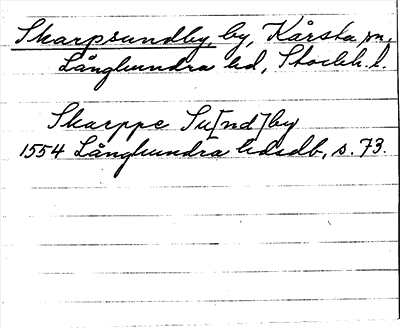 Skarpsundby, by, Kårsta sn.
Långhundra hd, Stockh. l.
Skarppe Su[nd]by
1554 Långhundra hdsdb, s. 73.